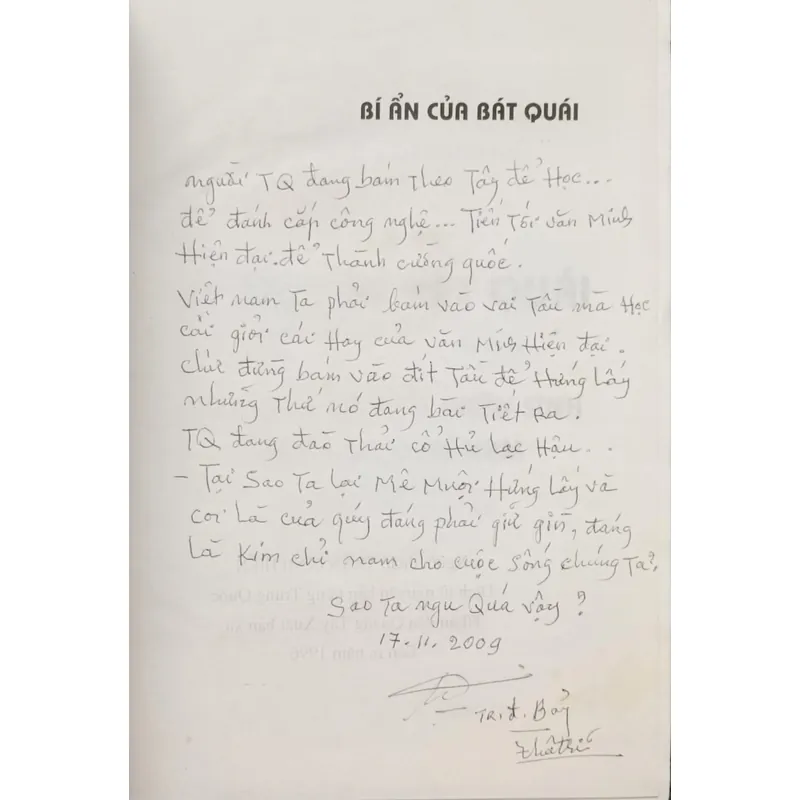 BÍ ẨN CỦA BÁT QUÁI
người TQ đang bám theo Tây để Học...
để đánh cắp công nghệ... Tiến tới văn Minh
Hiện đại. để Thành cường quốc.
Việt nam Ta phải bám vào vai Tầu mà Học
cái giỏi cái Hay của văn Minh Hiện đại.
chứ đừng bám vào đít Tầu để Hứng lấy
những Thứ nó đang bài Tiết Ra.
TQ đang đào Thải cổ Hủ Lạc Hậu...
- Tại Sao Ta lại Mê Muội Hứng lấy và
coi Là của quý đáng phải giữ gìn, đáng
là Kim chỉ nam cho cuộc sống chúng Ta?
Sao Ta ngu Quá vậy?
17.11.2009
TR.đ. Bảy